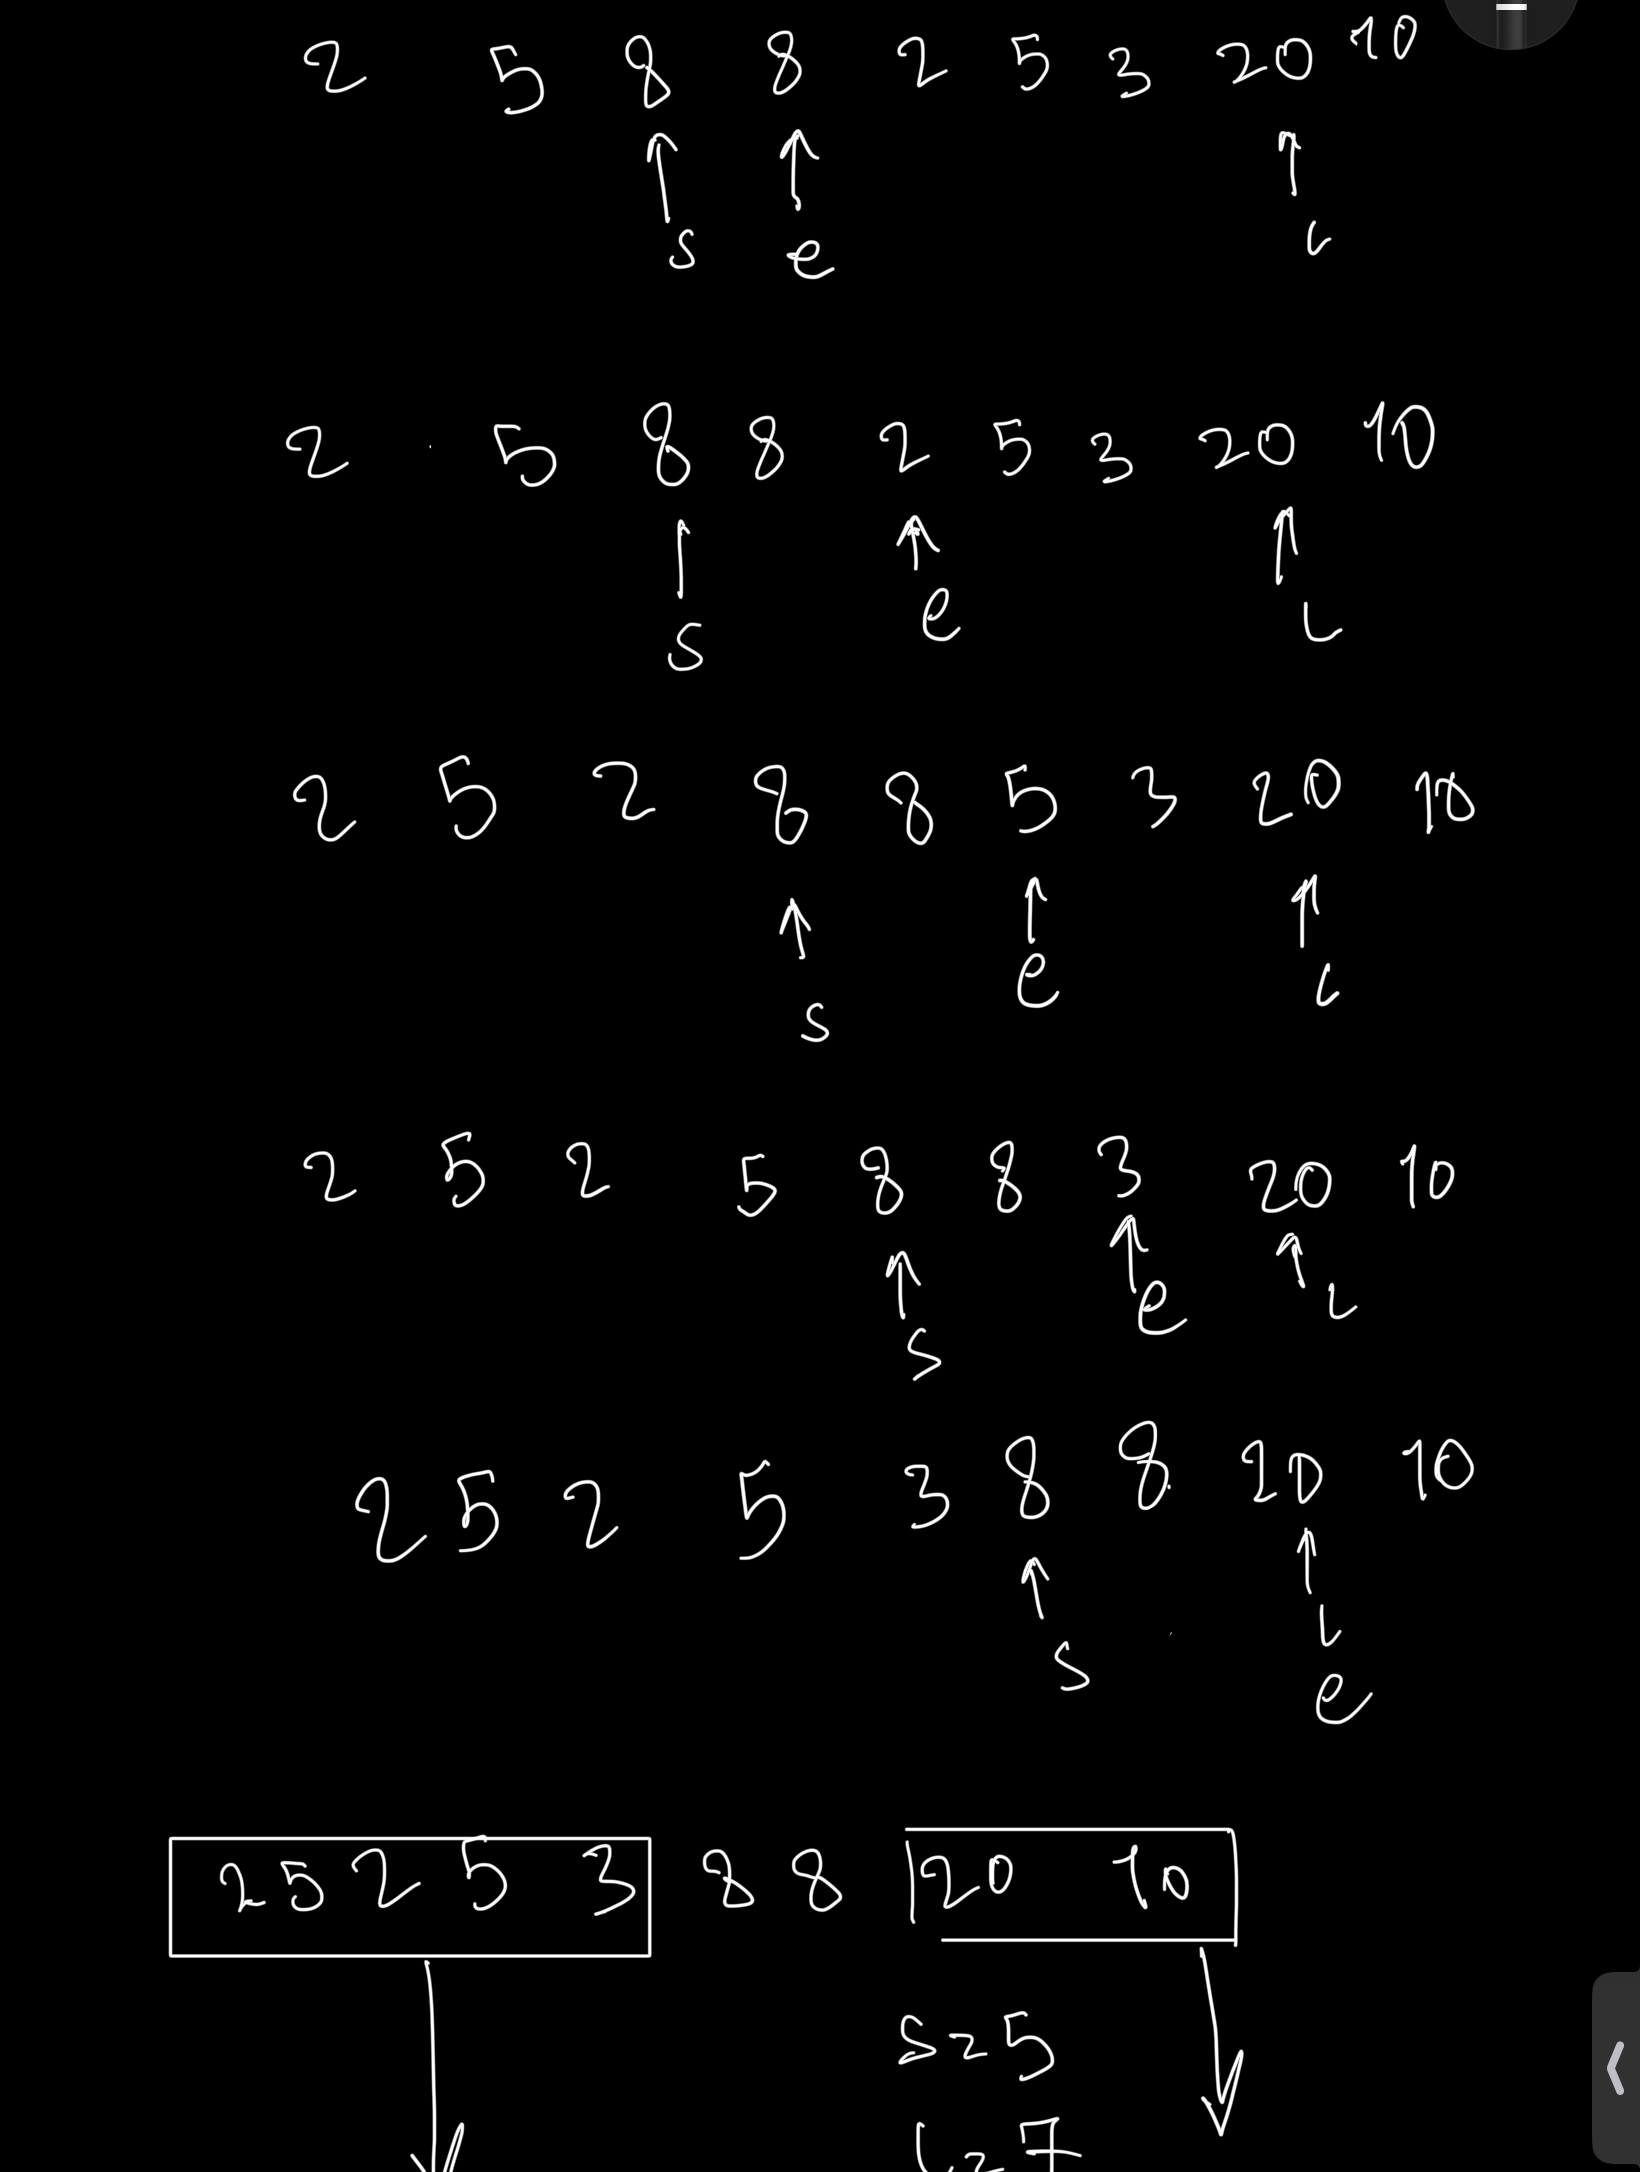 2 5 8 8 2 5 3 20 10
s e L
2 5 8 8 2 5 3 20 10
s e L
2 5 2 8 8 5 3 20 10
s e L
2 5 2 5 8 8 3 20 10
s e L
2 5 2 5 3 8 8 20 10
s L
e
2 5 2 5 3 8 8 20 10
s=5
L=7